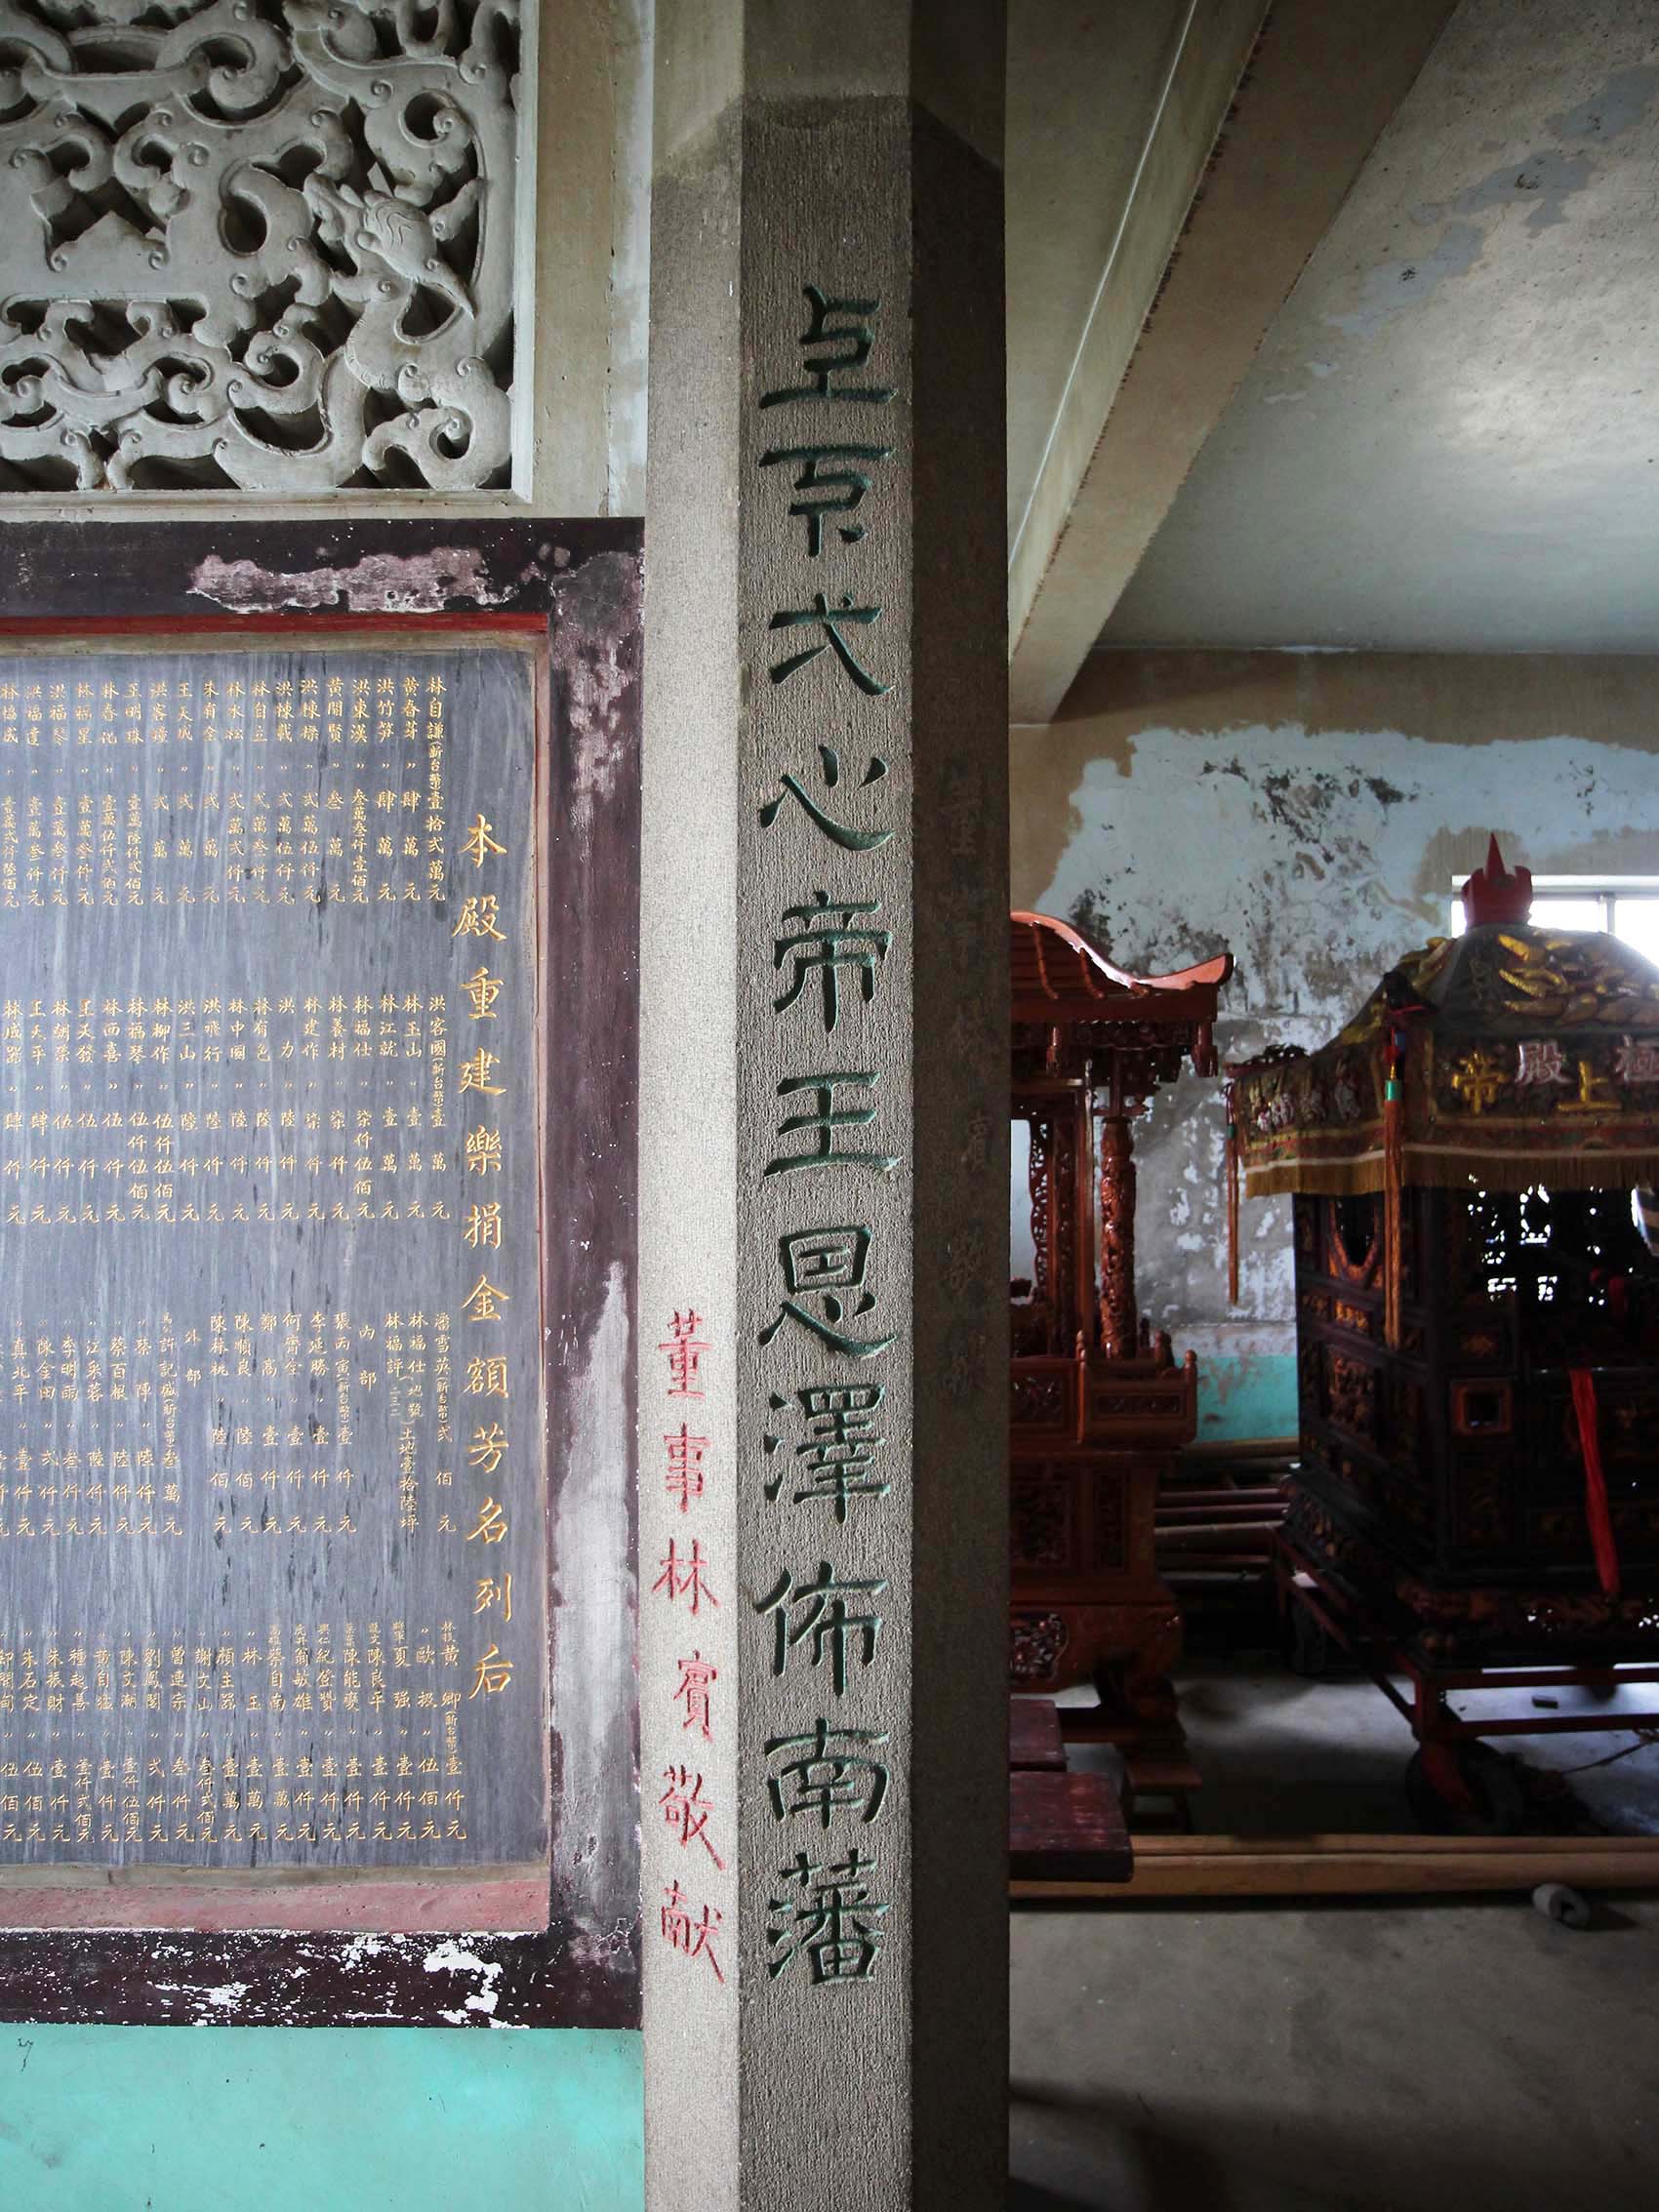 本殿重建樂捐金額芳名列后
林自謙(新台幣)壹拾弍萬元
黃春芽〃肆萬元
洪竹笋〃肆萬元
洪東漢〃叁萬叁仟壹佰元
黃開賢〃叁萬元
洪棟樑〃弍萬伍仟元
洪棟載〃弍萬伍仟元
林自立〃弍萬叁仟元
林水松〃弍萬弍仟元
朱有金〃弍萬元
王天成〃弍萬元
洪客鐘〃弍萬元
王明珠〃壹萬陸仟弍佰元
林春記〃壹萬伍仟弍佰元
林福星〃壹萬叁仟元
洪福琴〃壹萬叁仟元
洪福達〃壹萬叁仟元
林福成〃壹萬弍仟陸佰元
洪客國(新台幣)壹萬元
林玉山〃壹萬元
林江就〃壹萬元
林福仕〃柒仟伍佰元
林養村〃柒仟元
林建作〃柒仟元
洪力〃陸仟元
林有色〃陸仟元
林中國〃陸仟元
洪飛行〃陸仟元
洪三山〃陸仟元
林柳作〃伍仟伍佰元
林福琴〃伍仟伍佰元
林西喜〃伍仟元
王天發〃伍仟元
林朝榮〃伍仟元
王天平〃肆仟元
林成器〃肆仟元
潘雪英(新台幣)弍佰元
林福仕(地號
林福評 二三二)土地壹拾陸坪
內部
張丙寅(新台幣)壹仟元
李延勝〃壹仟元
何齊全〃壹仟元
鄭高〃壹仟元
陳順良〃陸佰元
陳蘇桃〃陸佰元
外部
馬許記盛(新台幣)叁萬元
〃蔡陣〃陸仟元
〃蔡百根〃陸仟元
〃江采蓉〃陸仟元
〃李明雨〃叁仟元
〃陳金田〃弍仟元
〃真北平〃壹仟元
林投黃卿(新台幣)壹仟元
〃歐报〃伍佰元
夏强〃壹仟元
龍文陳良平〃壹仟元
陳能爽〃壹仟元
興仁紀登贊〃壹仟元
翁敏雄〃壹仟元
高雄蔡自南〃壹萬元
〃林玉〃壹萬元
〃顏主器〃壹萬元
〃謝文山〃叁仟弍佰元
〃曾連宗〃叁仟元
〃劉鳳閣〃弍仟元
〃陳文潮〃壹仟伍佰元
〃黃自猛〃壹仟元
〃種起善〃壹仟弍佰元
〃朱振財〃壹仟元
〃朱石定〃伍佰元
上下弌心帝王恩澤佈南藩
董事林賓敬献
極上
殿帝